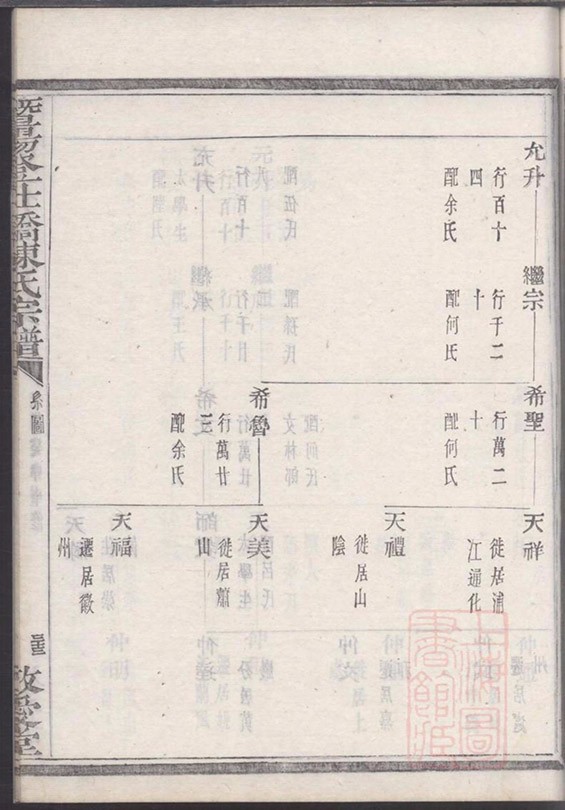 允升
行百十
四
配余氏
繼宗
行千二
十
配何氏
希聖
行萬二
十
配何氏
希魯
行萬廿
三
配余氏
天祥
徙居浦
江通化
天禮
徙居山
陰
天美
徙居蕭
山
天福
遷居徽
州
陳氏宗譜
系圖
敬愛堂
上海圖
書館藏